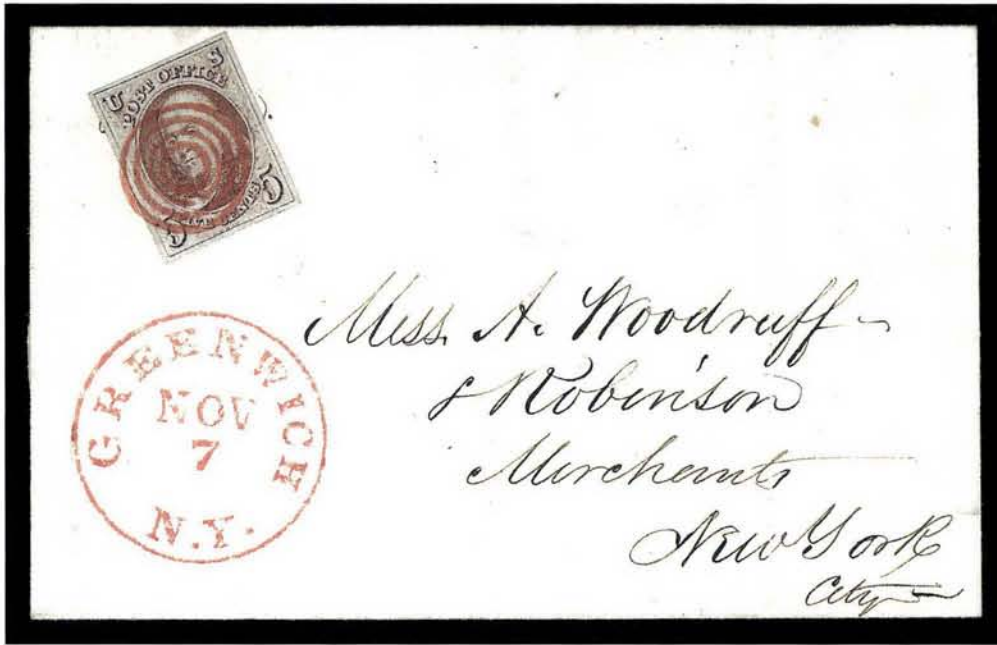 U S
POST OFFICE
5 FIVE CENTS 5
GREENWICH
NOV
7
N.Y.
Miss. A. Woodruff
& Robinson
Merchants
New York
City